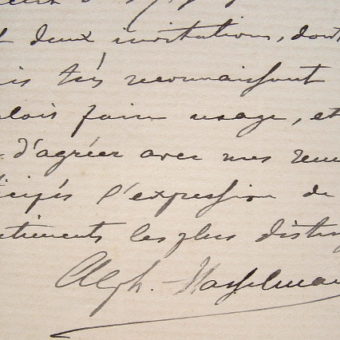 t deux invitations, dont
is très reconnaissant
lais faire usage, et
d'agréer avec mes remer
cipés l'expression de
timents les plus disting
Alph. Hasselman